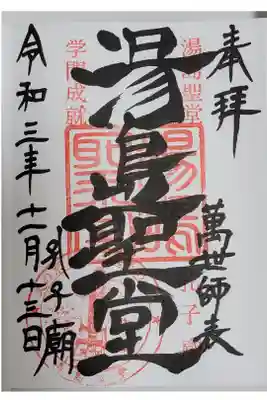 奉拝
萬世師表
湯島聖堂
湯島聖堂
孔子廟
学問成就
令和三年十一月十三日